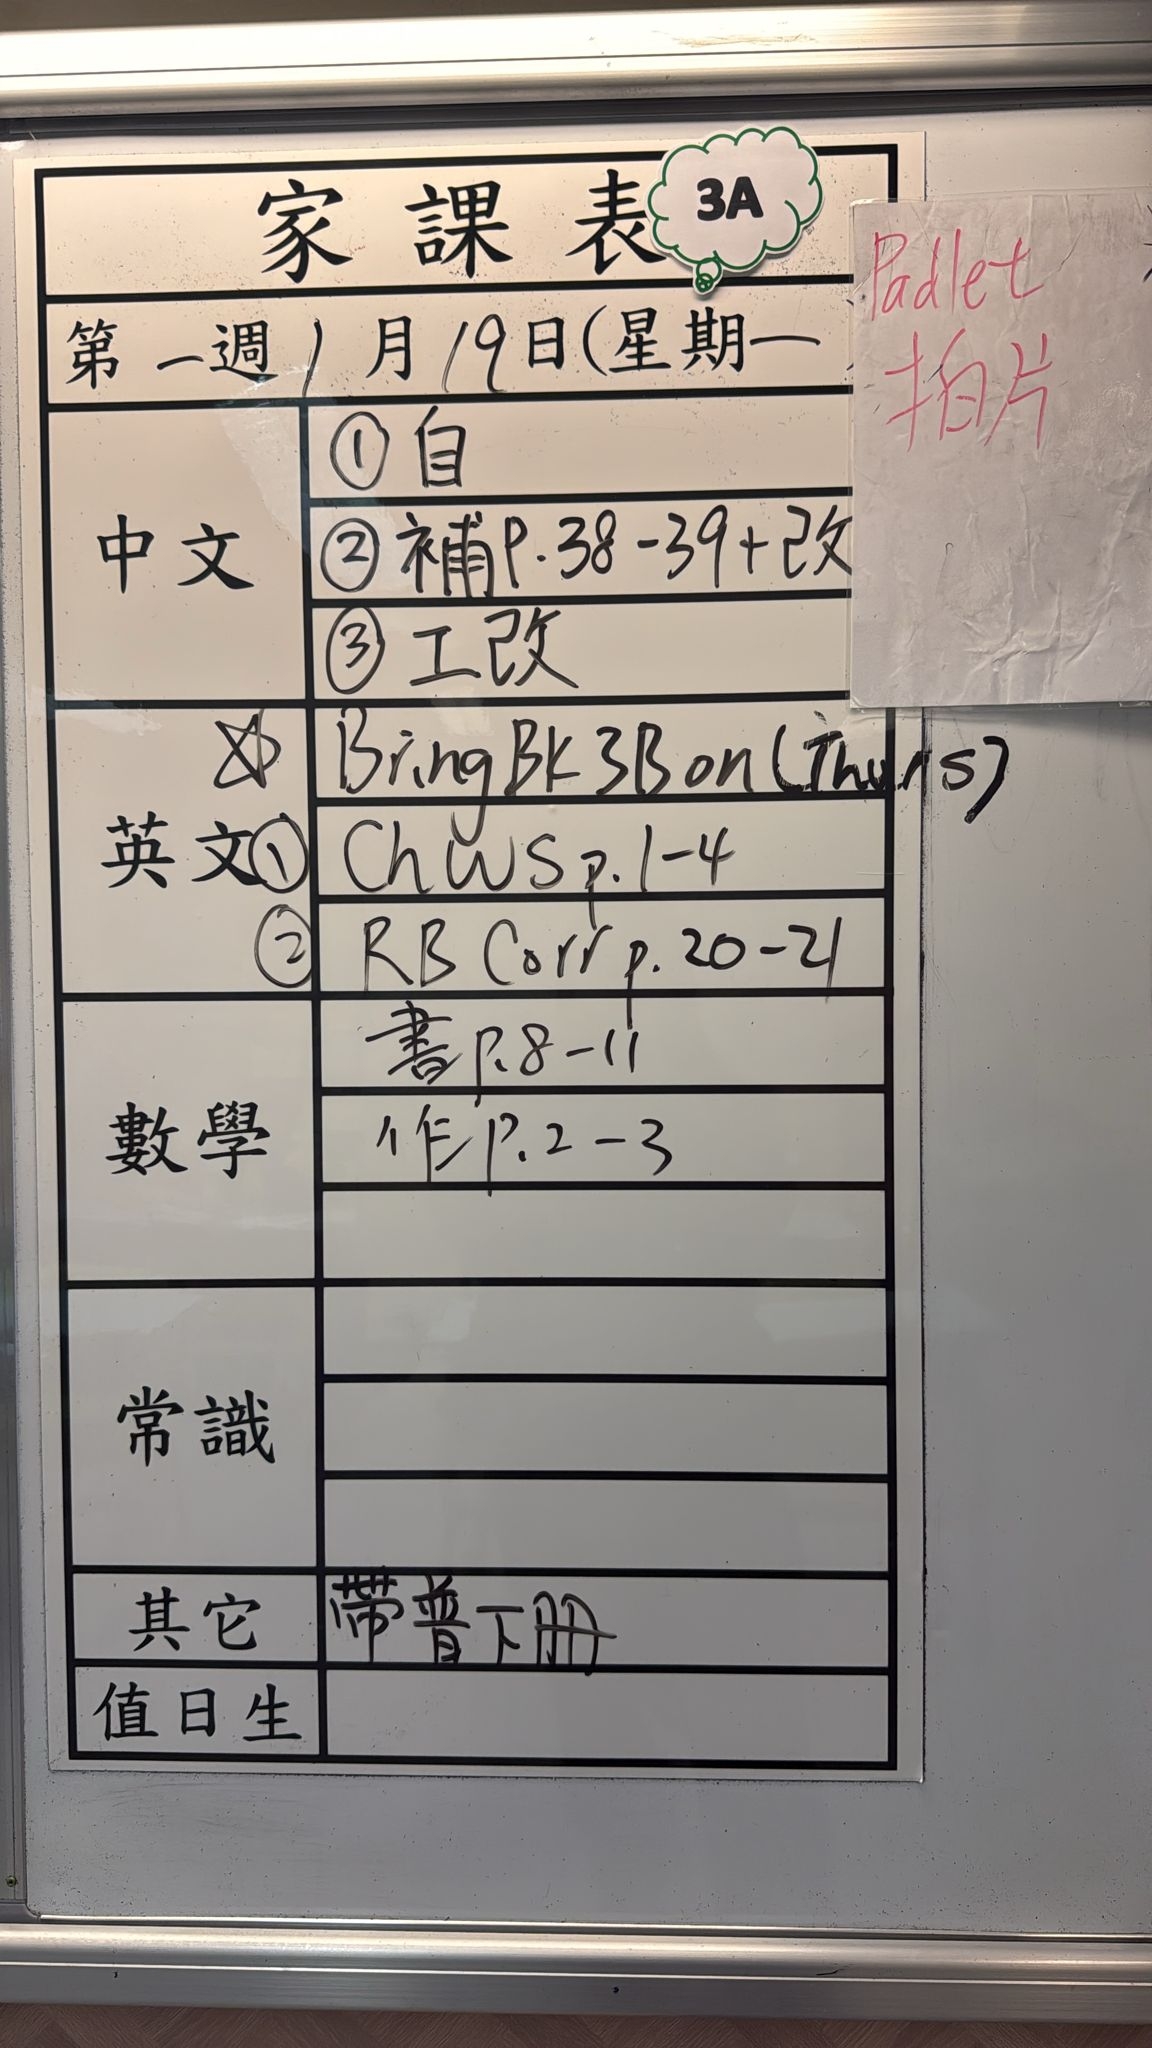 家課表
3A
第一週 1月19日(星期一
Padlet
拍片
中文
① 自
② 補P.38-39+改
③ 工改
英文
☆ Bring BK 3B on (Thurs)
① Ch WS p.1-4
② RB Corr p.20-21
數學
書p.8-11
作P.2-3
常識
其它
帶普下冊
值日生